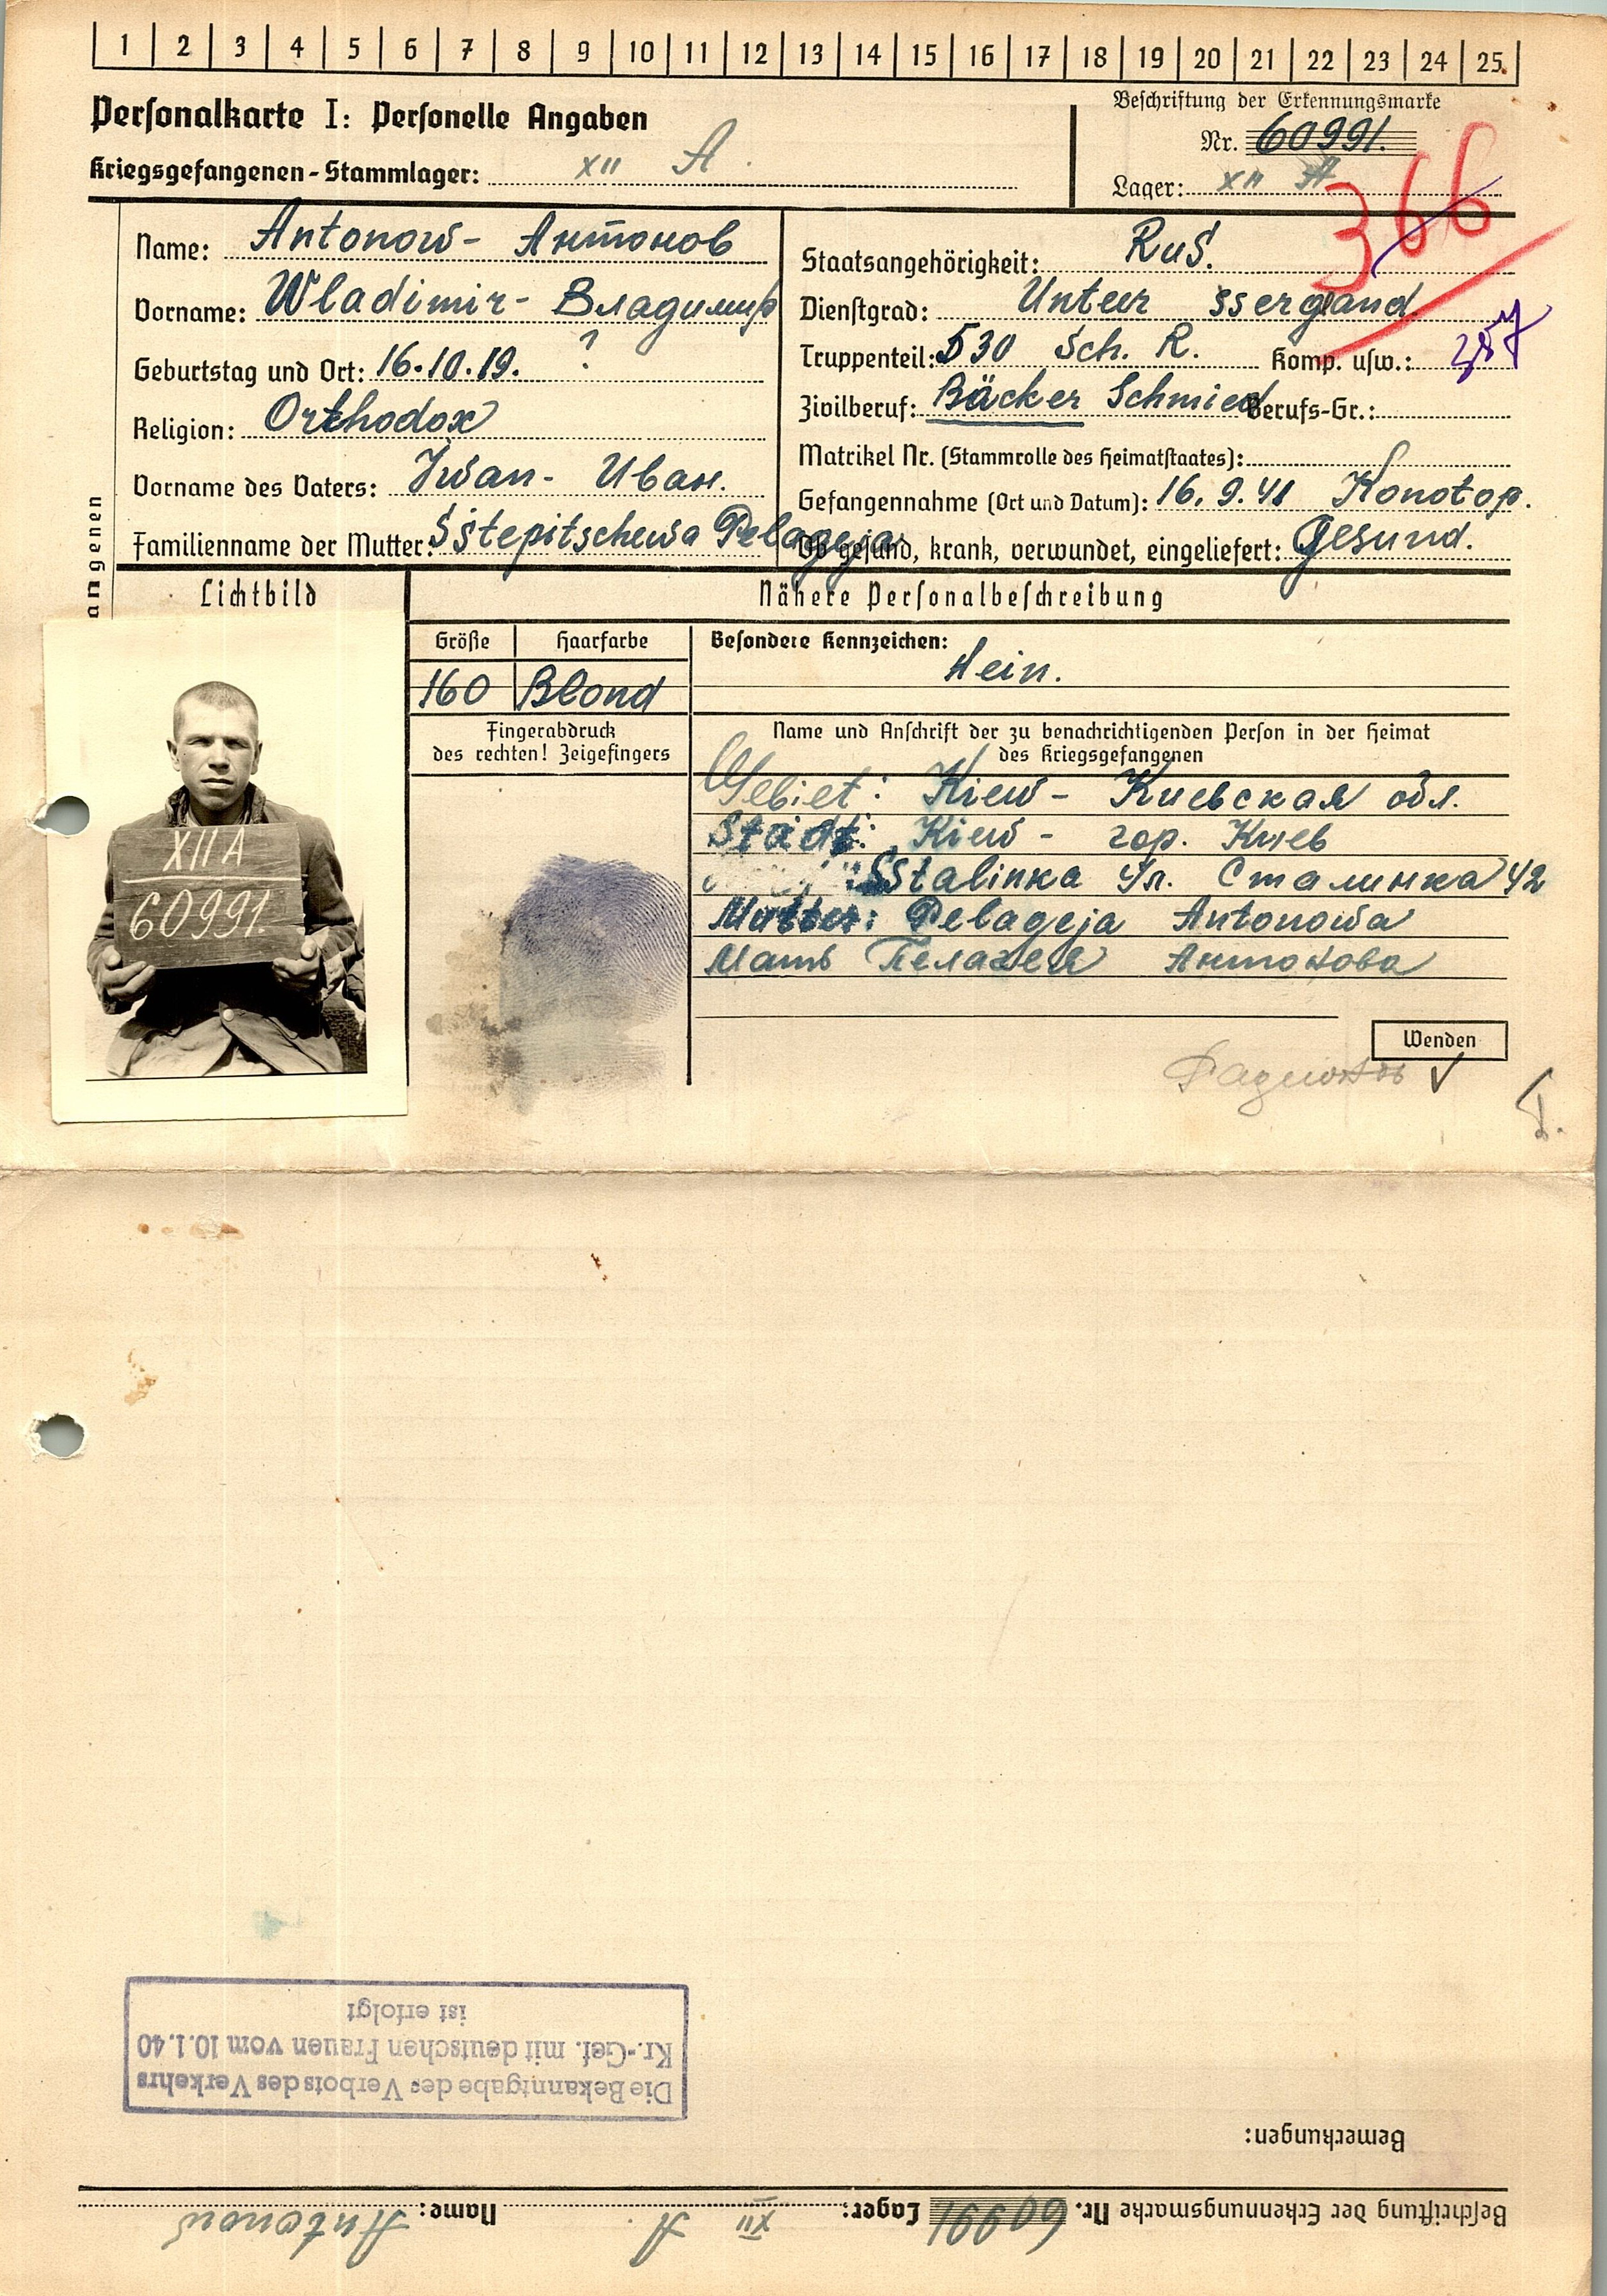 1 2 3 4 5 6 7 8 9 10 11 12 13 14 15 16 17 18 19 20 21 22 23 24 25.
Personalkarte I: Personelle Angaben
Kriegsgefangenen-Stammlager: XII A.
Beschriftung der Erkennungsmarke
Nr. 60991.
Lager: XII A
366
Name: Antonow- Антонов
Vorname: Wladimir- Владимир
Geburtstag und Ort: 16.10.19. ?
Religion: Orthodox
Vorname des Vaters: Iwan- Иван.
Familienname der Mutter: Sstepitschewa Pelageja
Staatsangehörigkeit: Rus.
Dienstgrad: Unter ssergand.
Truppenteil: 530 Sch. R. Komp. usw.:
Zivilberuf: Bäcker Schmied Berufs-Gr.:
Matrikel Nr. (Stammrolle des Heimatstaates):
Gefangennahme (Ort und Datum): 16.9.41 Konotop.
Ob gesund, krank, verwundet, eingeliefert: Gesund.
angenen
Lichtbild
Nähere Personalbeschreibung
Größe Haarfarbe
160 Blond
Besondere Kennzeichen:
Fingerabdruck
des rechten! Zeigefingers
Name und Anschrift der zu benachrichtigenden Person in der Heimat
des Kriegsgefangenen
Gebiet: Kiew- Киевская обл.
Stadt: Kiew- гор. Киев
Sstalinka ул. Сталинка 42
Mutter: Pelageja Antonowa
Мать Пелагея Антонова
XII A
60991.
Wenden
Die Bekanntgabe des Verbots des Verkehrs
Kr.-Gef. mit deutschen Frauen vom 10.1.40
ist erfolgt
Bemerkungen:
Beschriftung der Erkennungsmarke Nr. 60991 Lager: XII A. Name: Antonow